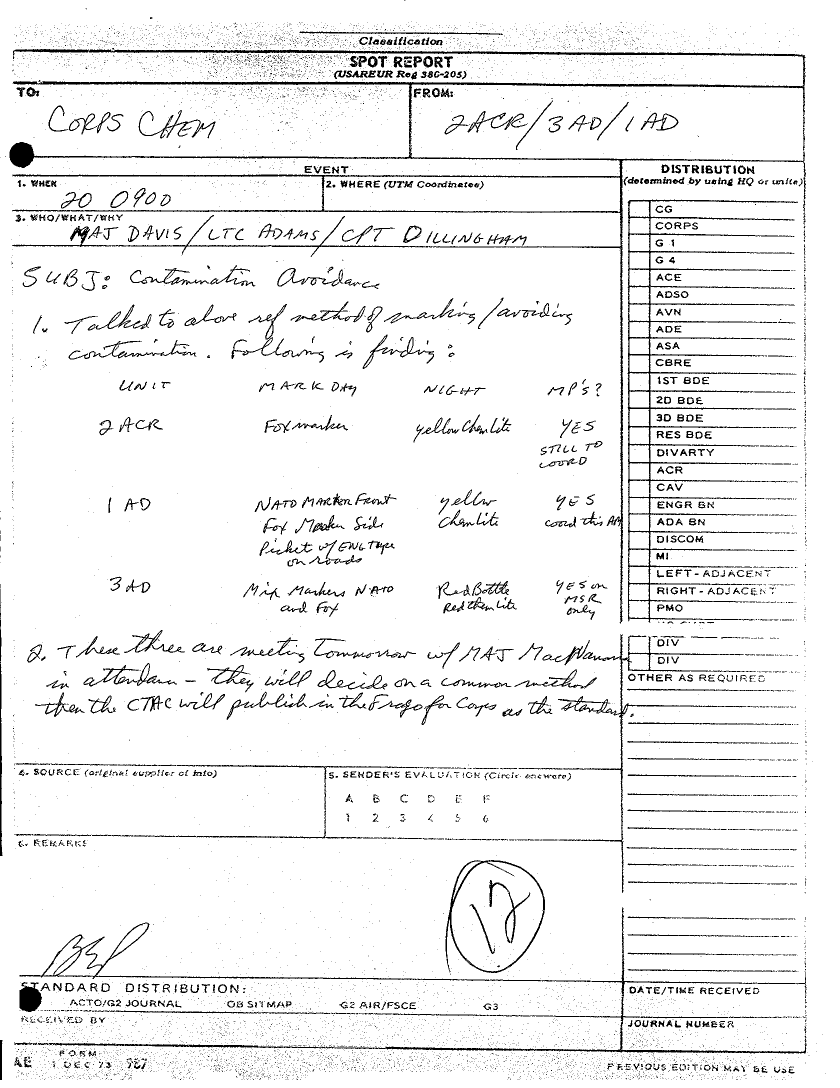 Classification
SPOT REPORT
(USAREUR Reg 380-205)
TO:
CORPS CHEM
FROM:
2ACR/3AD/1AD
EVENT
1. WHEN
20 0900
2. WHERE (UTM Coordinates)
3. WHO/WHAT/WHY
MAJ DAVIS/LTC ADAMS/CPT DILLINGHAM
SUBJ: Contamination Avoidance
1. Talked to above ref method of marking/avoiding
contamination. Following is finding:
UNIT MARK DAY NIGHT MP's?
2 ACR Fox marker yellow Chemlite YES
STILL TO
COORD
1 AD NATO Marker Front yellow YES
Fox Marker Side Chemlite coord this AM
Picket w/ ENG Tape
on roads
3 AD Mix Markers NATO Red Bottle YES on
and Fox Red Chemlite MSR
only
2. These three are meeting tommorrow w/ MAJ
in attendance - they will decide on a common method
then the CTAC will publish in the Frago for Corps as the standard.
4. SOURCE (original supplier of info)
5. SENDER'S EVALUATION (Circle answers)
A B C D E F
1 2 3 4 5 6
6. REMARKS
12
STANDARD DISTRIBUTION:
ACTO/G2 JOURNAL OB SITMAP G2 AIR/FSCE G3
RECEIVED BY
DISTRIBUTION
(determined by using HQ or units)
CG
CORPS
G 1
G 4
ACE
ADSO
AVN
ADE
ASA
CBRE
1ST BDE
2D BDE
3D BDE
RES BDE
DIVARTY
ACR
CAV
ENGR BN
ADA BN
DISCOM
MI
LEFT-ADJACENT
RIGHT-ADJACENT
PMO
DIV
DIV
OTHER AS REQUIRED
DATE/TIME RECEIVED
JOURNAL NUMBER
AE FORM 1 DEC 73 787
PREVIOUS EDITION MAY BE USE